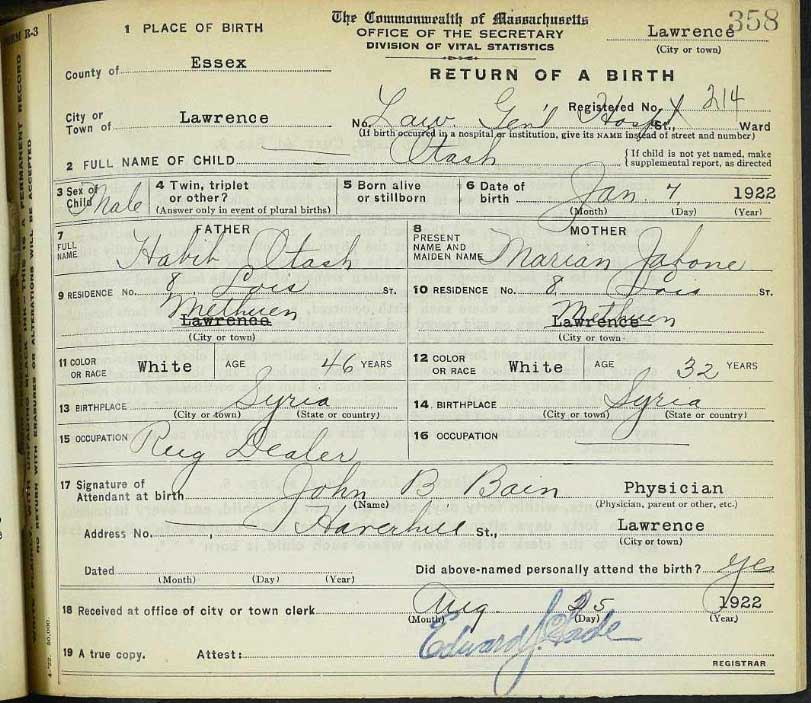 358
The Commonwealth of Massachusetts
OFFICE OF THE SECRETARY
DIVISION OF VITAL STATISTICS
RETURN OF A BIRTH
Lawrence
(City or town)
1 PLACE OF BIRTH
County of Essex
Registered No. 214
City or Town of Lawrence
No. Law Gen'l Hosp St., Ward
(If birth occurred in a hospital or institution, give its NAME instead of street and number)
2 FULL NAME OF CHILD — Otash
{If child is not yet named, make supplemental report, as directed
3 Sex of Child Male
4 Twin, triplet or other?
(Answer only in event of plural births)
5 Born alive or stillborn
6 Date of birth Jan. 7 1922
(Month) (Day) (Year)
FATHER
7 FULL NAME Habib Otash
MOTHER
8 PRESENT NAME AND MAIDEN NAME Marian Jabone
9 RESIDENCE No. 8 Lois St.
Methuen
Lawrence
(City or town)
10 RESIDENCE No. 8 Lois St.
Methuen
Lawrence
(City or town)
11 COLOR OR RACE White AGE 46 YEARS
12 COLOR OR RACE White AGE 32 YEARS
13 BIRTHPLACE Syria
(City or town) (State or country)
14 BIRTHPLACE Syria
(City or town) (State or country)
15 OCCUPATION Rug Dealer
16 OCCUPATION —
17 Signature of Attendant at birth John B Bain Physician
(Name) (Physician, parent or other, etc.)
Address No. —, Haverhill St., Lawrence
(City or town)
Dated
(Month) (Day) (Year)
Did above-named personally attend the birth? Yes
18 Received at office of city or town clerk Aug 25 1922
(Month) (Day) (Year)
19 A true copy. Attest: Edward J. Wade
REGISTRAR